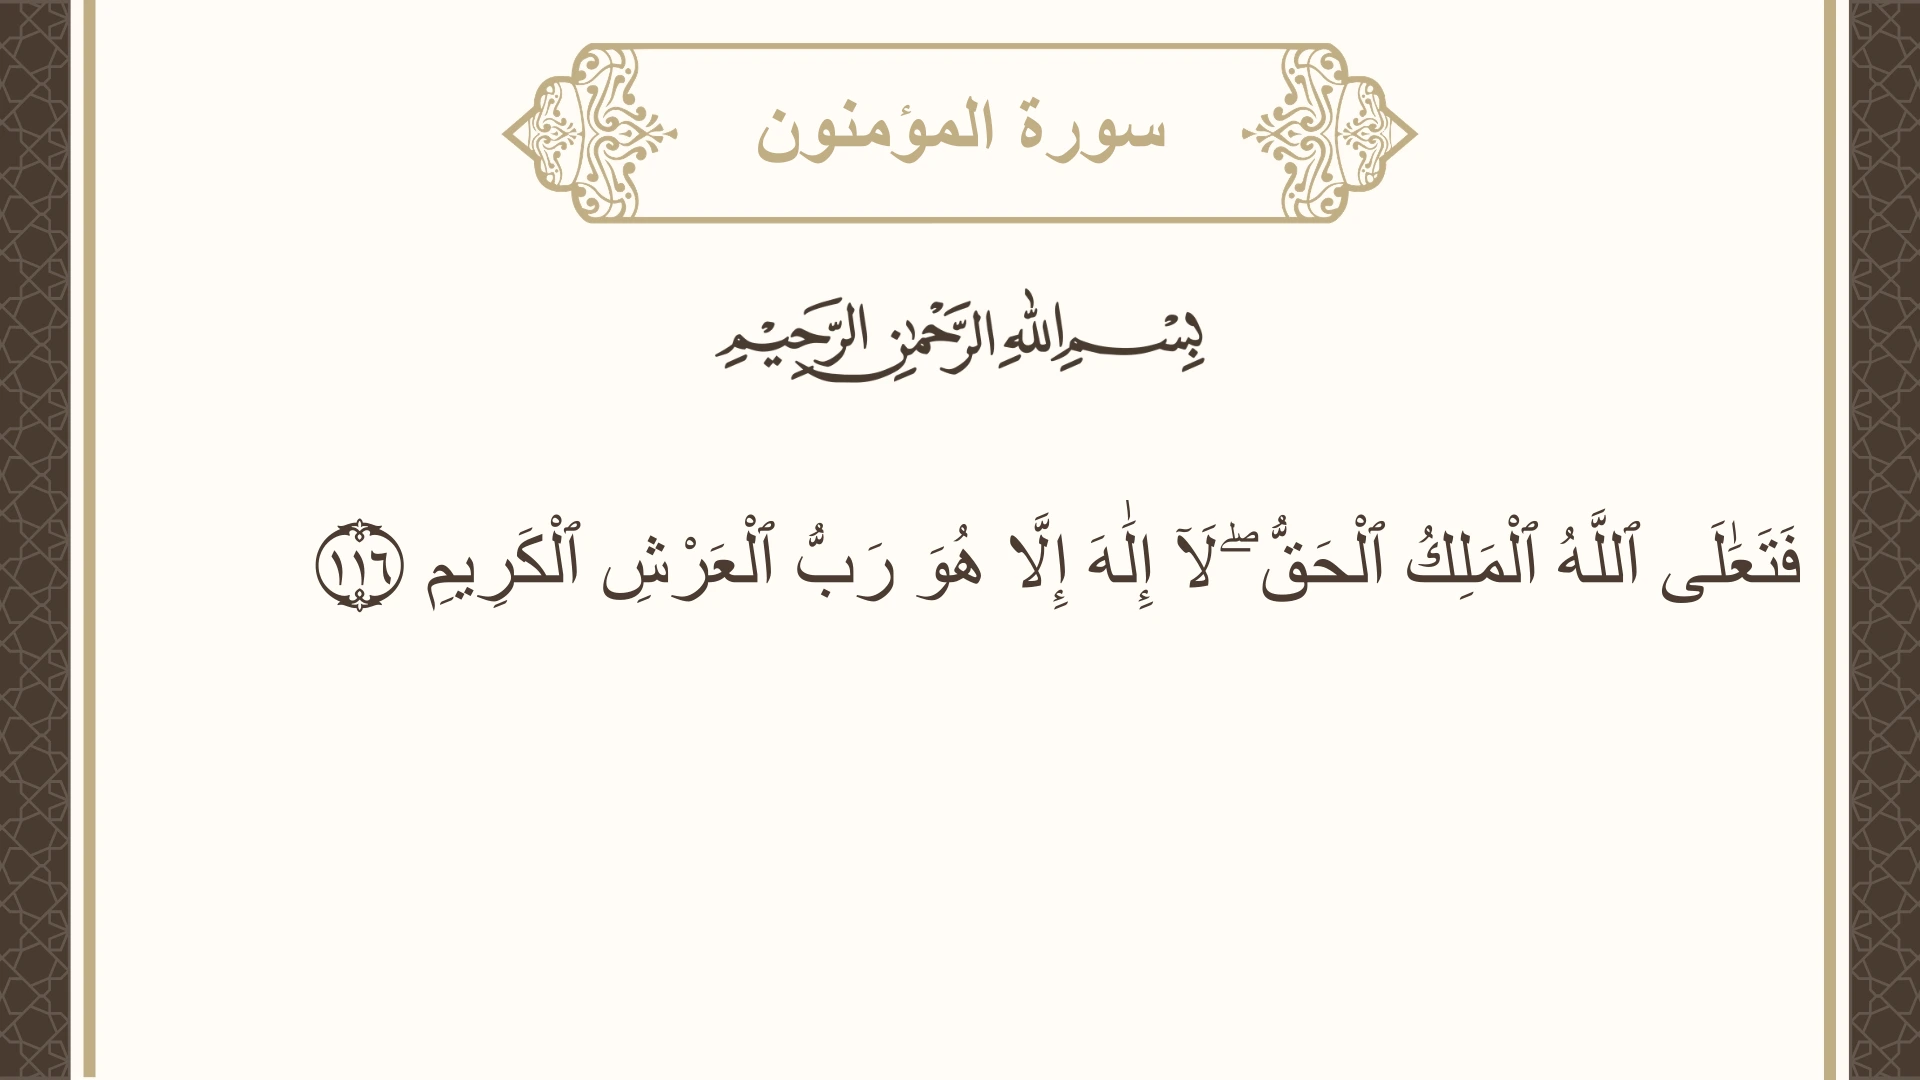 سورة المؤمنون
بِسْمِ اللهِ الرَّحْمٰنِ الرَّحِيْمِ
فَتَعَٰلَى ٱللَّهُ ٱلْمَلِكُ ٱلْحَقُّ ۖ لَآ إِلَٰهَ إِلَّا هُوَ رَبُّ ٱلْعَرْشِ ٱلْكَرِيمِ ١١٦